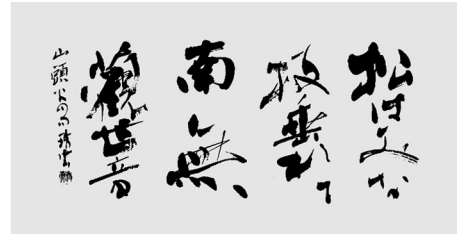 松はみな
枝垂れて
南無
観世音
山頭火の句